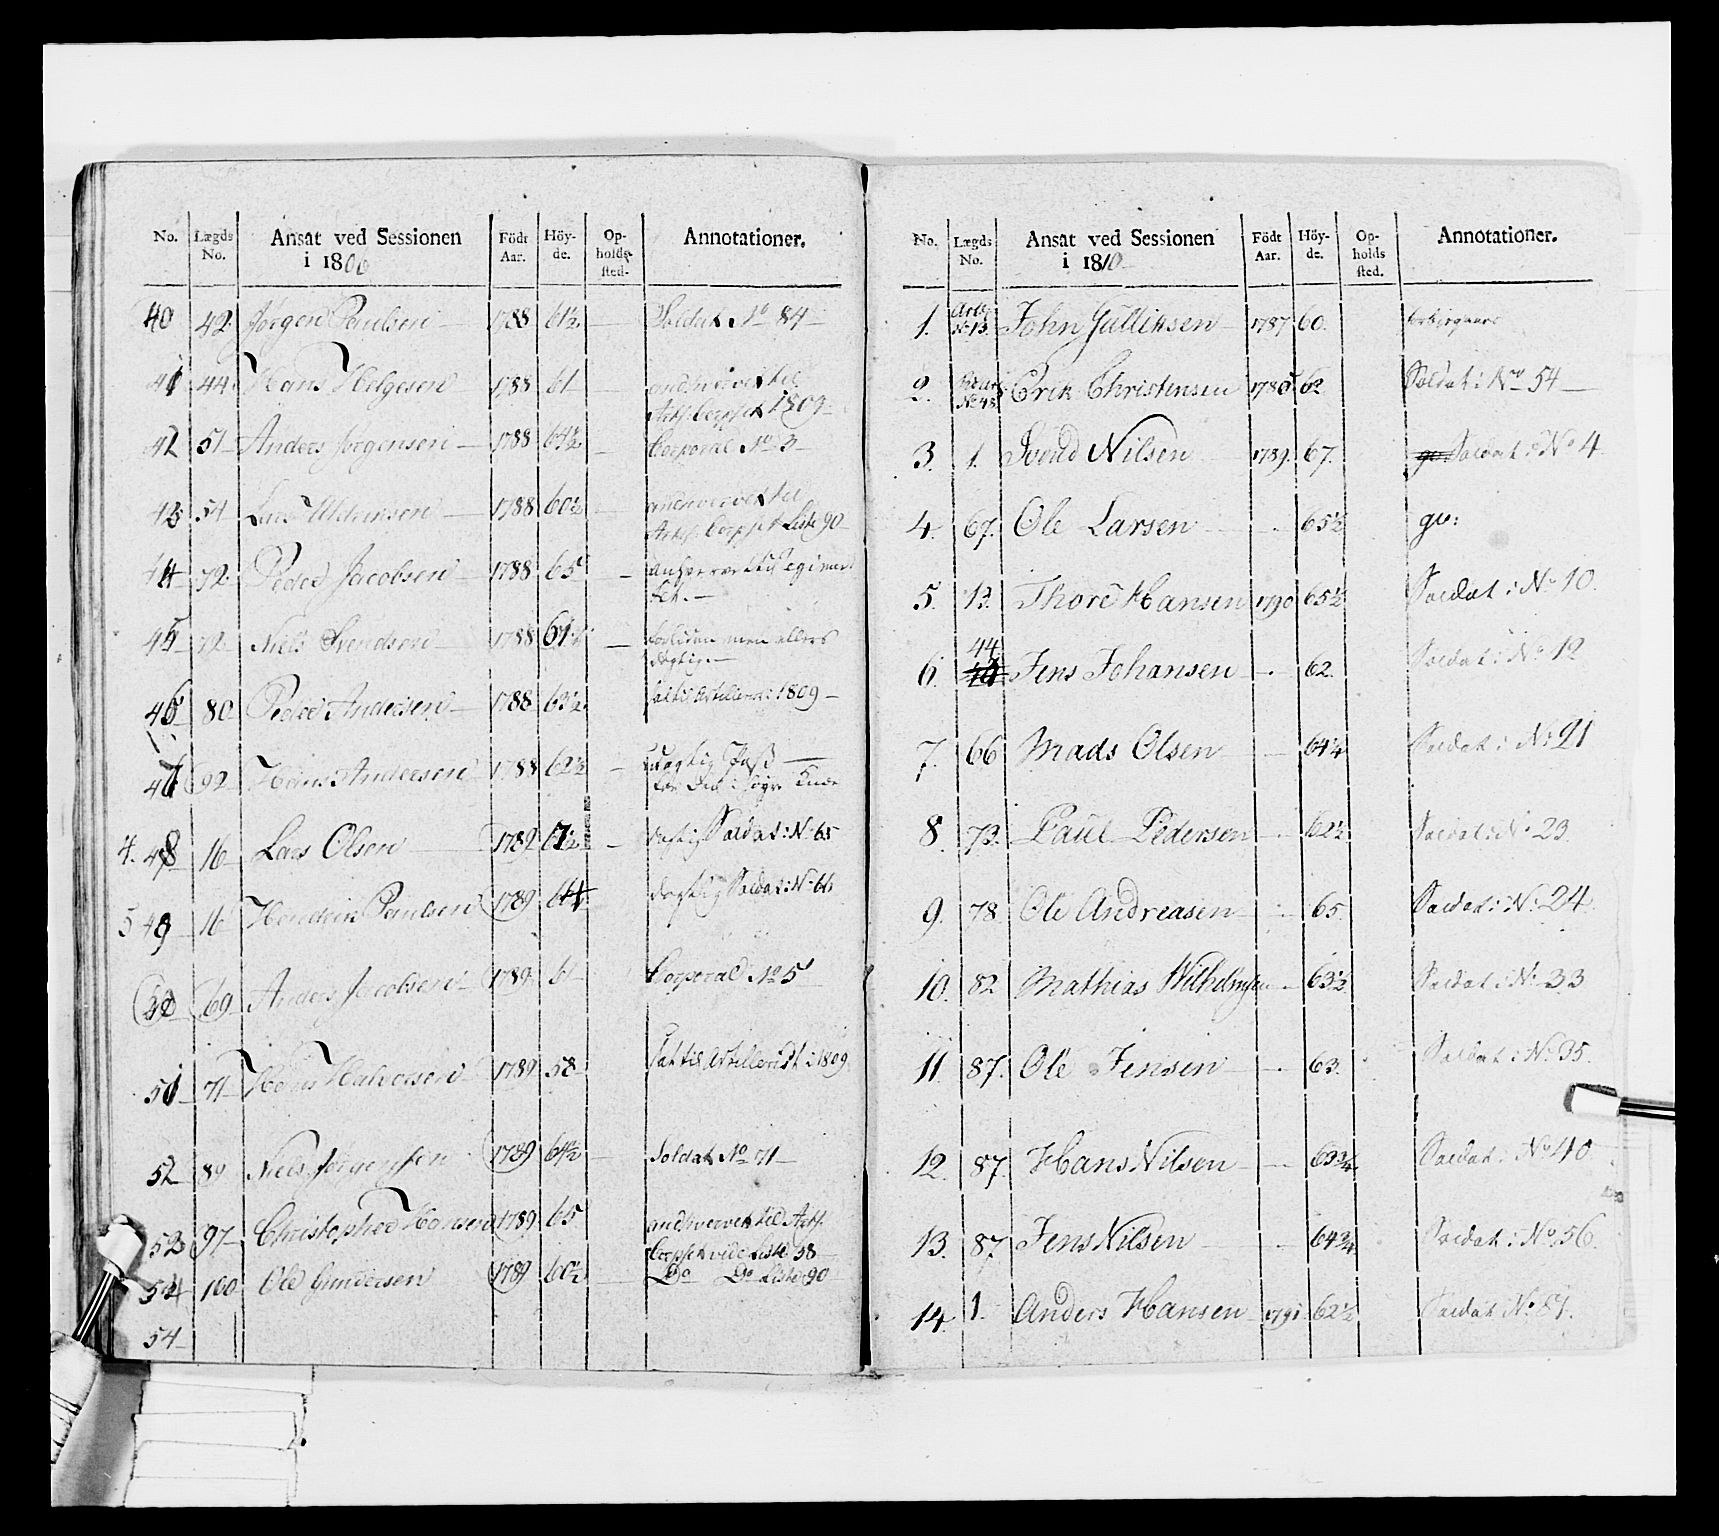 No. Lægds No. Ansat ved Sessionen i 180 Födt Aar. Höy- de. Op- holds- sted. Annotationer.
40 42 Jørgen Paulsen 1788 61½ Soldat No 84
41 44 Hans Helgesen 1788 61
Corpset 1809
42 51 Anders Jørgensen 1788 64½ Corporal No 3
43 54 Lars 1788 60½
Corpset Liste 90
44 72 Peder Jacobsen 1788 65
45 72 Niels Svendsen 1788 61½ men ellers
dygtig
46 80 Peder Andersen 1788 63½ 1809
47 92 Hans Andersen 1788 62½ udygtig
Knæ
4. 48 16 Lars Olsen 1789 dygtig Soldat: No 65
5 49 16 Hendrik Paulsen 1789 64 dygtig Soldat: No 66
50 69 Anders Jacobsen 1789 61 Corporal No 5
51 71 Hans Halvorsen 1789 58 sat til Artilleriet i 1809
52 89 Niels Jørgensen 1789 64½ Soldat No 71
53 97 Christopher Hansen 1789 65
Corpset vide Liste 58
54 100 Ole Gundersen 1789 60½ Do Do Liste 90
54
No. Lægds No. Ansat ved Sessionen i 1810 Födt Aar. Höy- de. Op- holds sted. Annotationer.
1. No 13. John Gulliksen 1787 60.
2. No 48 Erik Christensen 1785 62 Soldat: No 54
3. 1. Svend Nilsen 1789. 67. Soldat: No 4
4. 67. Ole Larsen 65½ gv:
5. 13. Thore Hansen 1790 65½ Soldat: No 10.
44.
6. Jens Johansen 62. Soldat: No 12
7. 66 Mads Olsen 64¼ Soldat: No 21
8. 73. Paul Pedersen 62½ Soldat: No 23.
9. 78. Ole Andreasen 65. Soldat: No 24.
10. 82 Mathias Wilhelmsen 63½ Soldat: No 33
11. 87. Ole Jensen 63. Soldat: No 35.
12. 87. Hans Nilsen 63¾ Soldat: No 40
13. 87 Jens Nilsen 64¾ Soldat: No 56.
14. 1. Anders Hansen 1791 62½ Soldat: No 81.